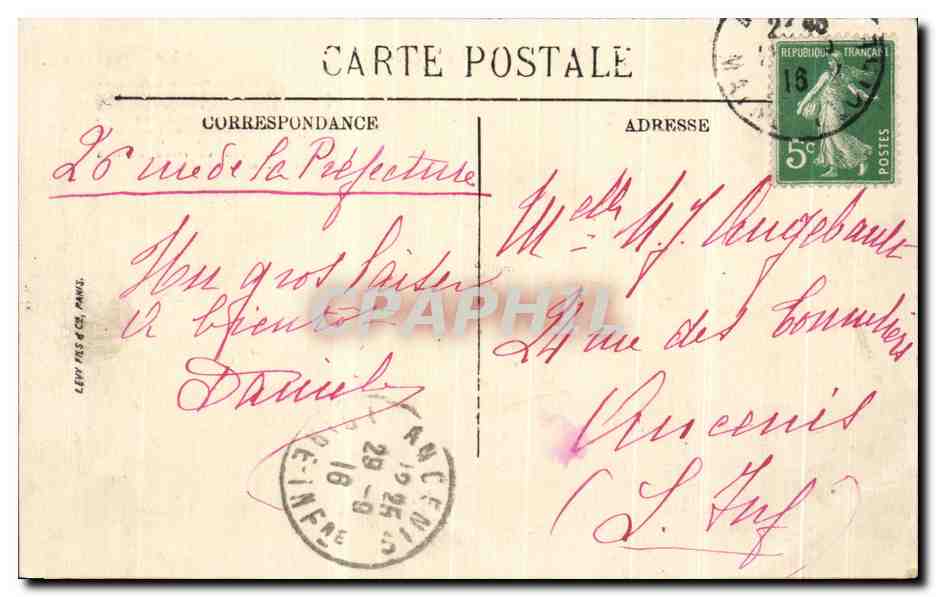 CARTE POSTALE
CORRESPONDANCE
ADRESSE
26 rue de la Préfecture
Un gros baiser
A bientôt
Daniel
Melle M. J. Angebault
24 rue des Tonneliers
Ancenis
(L. Inf)
LEVY FILS & Cie, PARIS.
REPUBLIQUE FRANÇAISE
5c
POSTES
16
ANCENIS
12 25
29 -9
16
LOIRE-INFRE
CPAPHIL